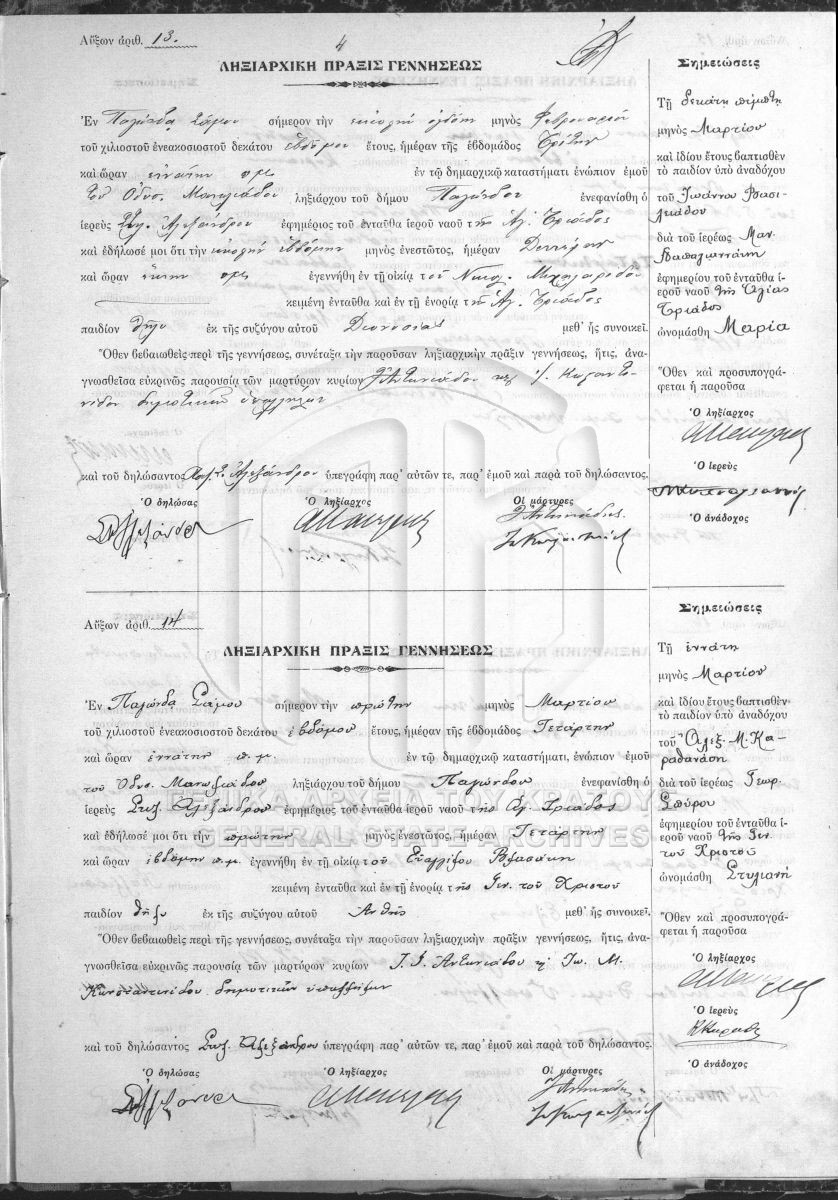 Αὔξων ἀριθ. 13.
4
ΛΗΞΙΑΡΧΙΚΗ ΠΡΑΞΙΣ ΓΕΝΝΗΣΕΩΣ
Ἐν Παγώνδα Σάμου σήμερον τὴν εἰκοστὴν ὀγδόην μηνὸς Φεβρουαρίου
τοῦ χιλιοστοῦ ἐνεακοσιοστοῦ δεκάτου ἑβδόμου ἔτους, ἡμέραν τῆς ἑβδομάδος Τρίτην
καὶ ὥραν ἐννάτην πμ ἐν τῷ δημαρχικῷ καταστήματι ἐνώπιον ἐμοῦ
τοῦ Ὀδυσ. Μανωλιάδου ληξιάρχου τοῦ δήμου Παγώνδου ἐνεφανίσθη ὁ
ἱερεὺς Στυλ. Ἀλεξάνδρου ἐφημέριος τοῦ ἐνταῦθα ἱεροῦ ναοῦ τῆς Ἁγ. Τριάδος
καὶ ἐδήλωσέ μοι ὅτι τὴν εἰκοστὴν ἑβδόμην μηνὸς ἐνεστῶτος, ἡμέραν Δευτέραν
καὶ ὥραν ἕκτην πμ ἐγεννήθη ἐν τῇ οἰκίᾳ τοῦ Νικολ.
κειμένῃ ἐνταῦθα καὶ ἐν τῇ ἐνορίᾳ τῆς Ἁγ. Τριάδος
παιδίον θῆλυ ἐκ τῆς συζύγου αὐτοῦ Διονυσίας μεθ᾽ ἧς συνοικεῖ.
Ὅθεν βεβαιωθεὶς περὶ τῆς γεννήσεως, συνέταξα τὴν παροῦσαν ληξιαρχικὴν πρᾶξιν γεννήσεως, ἥτις, ἀνα-
γνωσθεῖσα εὐκρινῶς παρουσίᾳ τῶν μαρτύρων κυρίων Ἀντωνιάδου Κωσταντι-
νίδου δημοτικῶν ὑπαλλήλων
καὶ τοῦ δηλώσαντος Ἀλεξάνδρου ὑπεγράφη παρ᾽ αὐτῶν τε, παρ᾽ ἐμοῦ καὶ παρὰ τοῦ δηλώσαντος.
Ὁ δηλώσας Ὁ ληξίαρχος Οἱ μάρτυρες
Σημειώσεις
Τῇ δεκάτῃ πέμπτῃ
μηνὸς Μαρτίου
καὶ ἰδίου ἔτους βαπτισθὲν
τὸ παιδίον ὑπὸ ἀναδόχου
τοῦ Ἰωάννου Βασι-
λειάδου
διὰ τοῦ ἱερέως Μαν.
Παπαγιαννάκη
ἐφημερίου τοῦ ἐνταῦθα ἱ-
εροῦ ναοῦ τῆς Ἁγίας
Τριάδος
ὠνομάσθη Μαρία
Ὅθεν καὶ προσυπογρά-
φεται ἡ παροῦσα
Ὁ ληξίαρχος
Ὁ ἱερεὺς
Ὁ ἀνάδοχος
Αὔξων ἀριθ. 14
ΛΗΞΙΑΡΧΙΚΗ ΠΡΑΞΙΣ ΓΕΝΝΗΣΕΩΣ
Ἐν Παγώνδα Σάμου σήμερον τὴν πρώτην μηνὸς Μαρτίου
τοῦ χιλιοστοῦ ἐνεακοσιοστοῦ δεκάτου ἑβδόμου ἔτους, ἡμέραν τῆς ἑβδομάδος Τετάρτην
καὶ ὥραν ἐννάτην π.μ. ἐν τῷ δημαρχικῷ καταστήματι, ἐνώπιον ἐμοῦ
τοῦ Ὀδυσ. Μανωλιάδου ληξιάρχου τοῦ δήμου Παγώνδου ἐνεφανίσθη ὁ
ἱερεὺς Στυλ. Ἀλεξάνδρου ἐφημέριος τοῦ ἐνταῦθα ἱεροῦ ναοῦ τῆς Ἁγ. Τριάδος
καὶ ἐδήλωσέ μοι ὅτι τὴν πρώτην μηνὸς ἐνεστῶτος, ἡμέραν Τετάρτην
καὶ ὥραν ἑβδόμην π.μ. ἐγεννήθη ἐν τῇ οἰκίᾳ τοῦ
κειμένῃ ἐνταῦθα καὶ ἐν τῇ ἐνορίᾳ τῆς Γεν. τοῦ Χριστοῦ
παιδίον θῆλυ ἐκ τῆς συζύγου αὐτοῦ Ἀνθῆς μεθ᾽ ἧς συνοικεῖ.
Ὅθεν βεβαιωθεὶς περὶ τῆς γεννήσεως, συνέταξα τὴν παροῦσαν ληξιαρχικὴν πρᾶξιν γεννήσεως, ἥτις, ἀνα-
γνωσθεῖσα εὐκρινῶς παρουσίᾳ τῶν μαρτύρων κυρίων Ἀντωνιάδου Ἰω. Μ.
Κωνσταντινίδου δημοτικῶν ὑπαλλήλων
καὶ τοῦ δηλώσαντος Στυλ. Ἀλεξάνδρου ὑπεγράφη παρ᾽ αὐτῶν τε, παρ᾽ ἐμοῦ καὶ παρὰ τοῦ δηλώσαντος.
Ὁ δηλώσας Ὁ ληξίαρχος Οἱ μάρτυρες
Σημειώσεις
Τῇ ἐννάτῃ
μηνὸς Μαρτίου
καὶ ἰδίου ἔτους βαπτισθὲν
τὸ παιδίον ὑπὸ ἀναδόχου
τοῦ Ἀλεξ. Μ. Κα-
ραθανάση
διὰ τοῦ ἱερέως Γεωρ.
Σπύρου
ἐφημερίου τοῦ ἐνταῦθα ἱ-
εροῦ ναοῦ τῆς Γεν.
τοῦ Χριστοῦ
ὠνομάσθη Στυλιανή
Ὅθεν καὶ προσυπογρά-
φεται ἡ παροῦσα
Ὁ ληξίαρχος
Ὁ ἱερεὺς
Ὁ ἀνάδοχος
ΓΕΝΙΚΑ ΑΡΧΕΙΑ ΤΟΥ ΚΡΑΤΟΥΣ
GENERAL STATE ARCHIVES